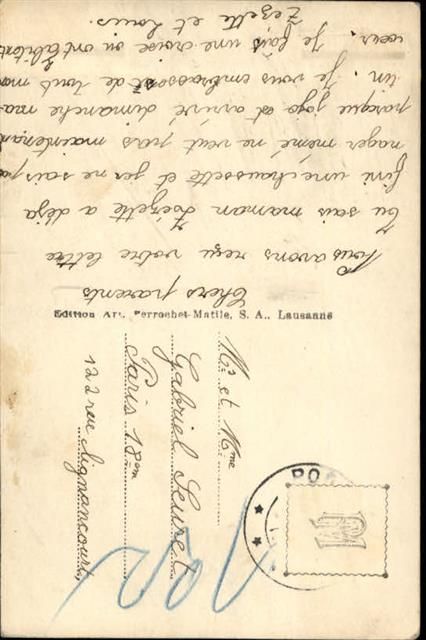 Chers parents
Nous avons reçu votre lettre
tu sais maman Zézette a déja
fini une chaussette et je ne sais pa
nager mémé ne veut pas maintenant
parceque jojo est arrivé dimanche ma-
tin. Je vous embrasse de tout mon
cœur. Je fais une croise on
Zezette et Louis.
Edition Art. Perrochet-Matile, S. A., Lausanne
Mr et Mme
Gabriel
Paris 18em
122 rue Clignancourt
PO
122